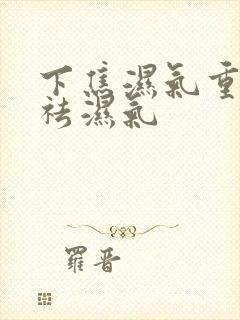 下焦濕氣重
祛濕氣
羅晋